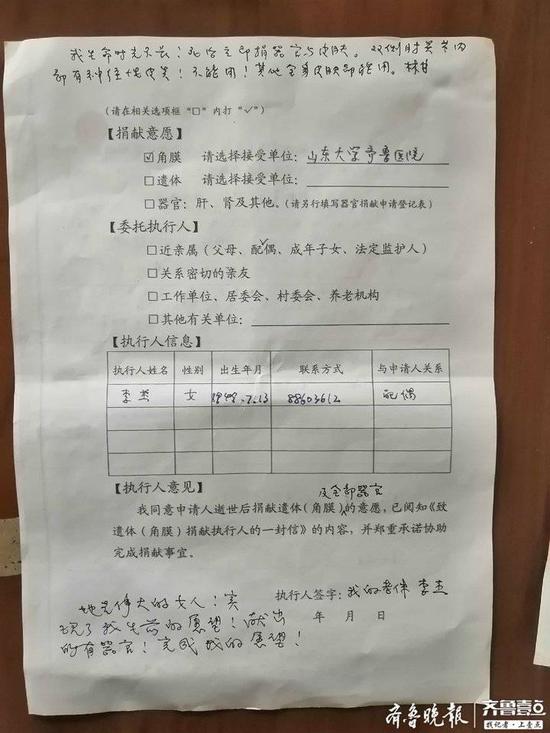 我生命时光不长！死后立即捐器官与皮肤。双侧肘关节内
都有神经性皮炎！不能用！其他全身皮肤都能用。林廿
（请在相关选项框“□”内打“✓”）
【捐献意愿】
☑角膜 请选择接受单位：山东大学齐鲁医院
□遗体 请选择接受单位：
□器官：肝、肾及其他。（请另行填写器官捐献申请登记表）
【委托执行人】
□近亲属（父母、配偶、成年子女、法定监护人） ✓
□关系密切的亲友
□工作单位、居委会、村委会、养老机构
□其他有关单位：
【执行人信息】
执行人姓名 性别 出生年月 联系方式 与申请人关系
李杰 女 1949.7.13 88603612 配偶
【执行人意见】
及全部器官
我同意申请人逝世后捐献遗体（角膜）的意愿，已阅知《致
遗体（角膜）捐献执行人的一封信》的内容，并郑重承诺协助
完成捐献事宜。
执行人签字：我的老伴 李杰
年 月 日
她是伟大的女人！实
现了我生前的愿望！献出
所有器官！完成我的愿望！
齐鲁晚报 齐鲁壹点
找记者·上壹点